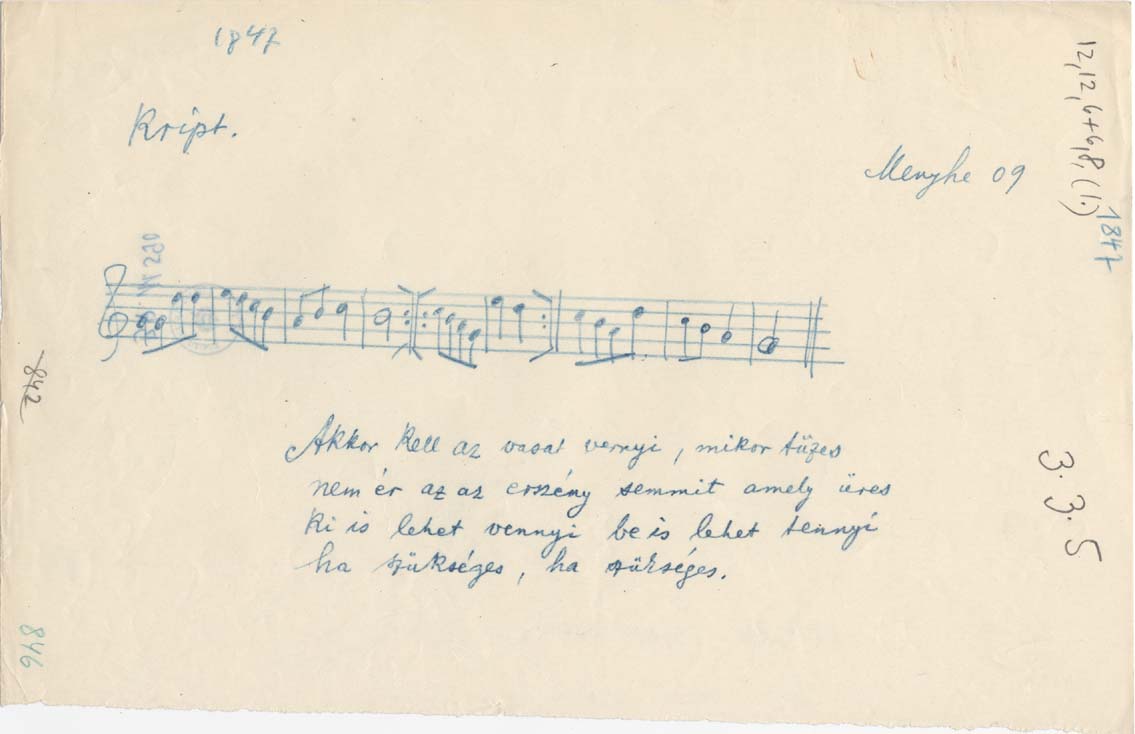 1847
Kript.
Menyhe 09
12,12,6+6,8, (1.)
1847
842
Akkor kell az vasat vernyi, mikor tüzes
nem ér az az erszény semmit amely üres
ki is lehet vennyi be is lehet tennyi
ha szükséges, ha szükséges.
3.3.5
846